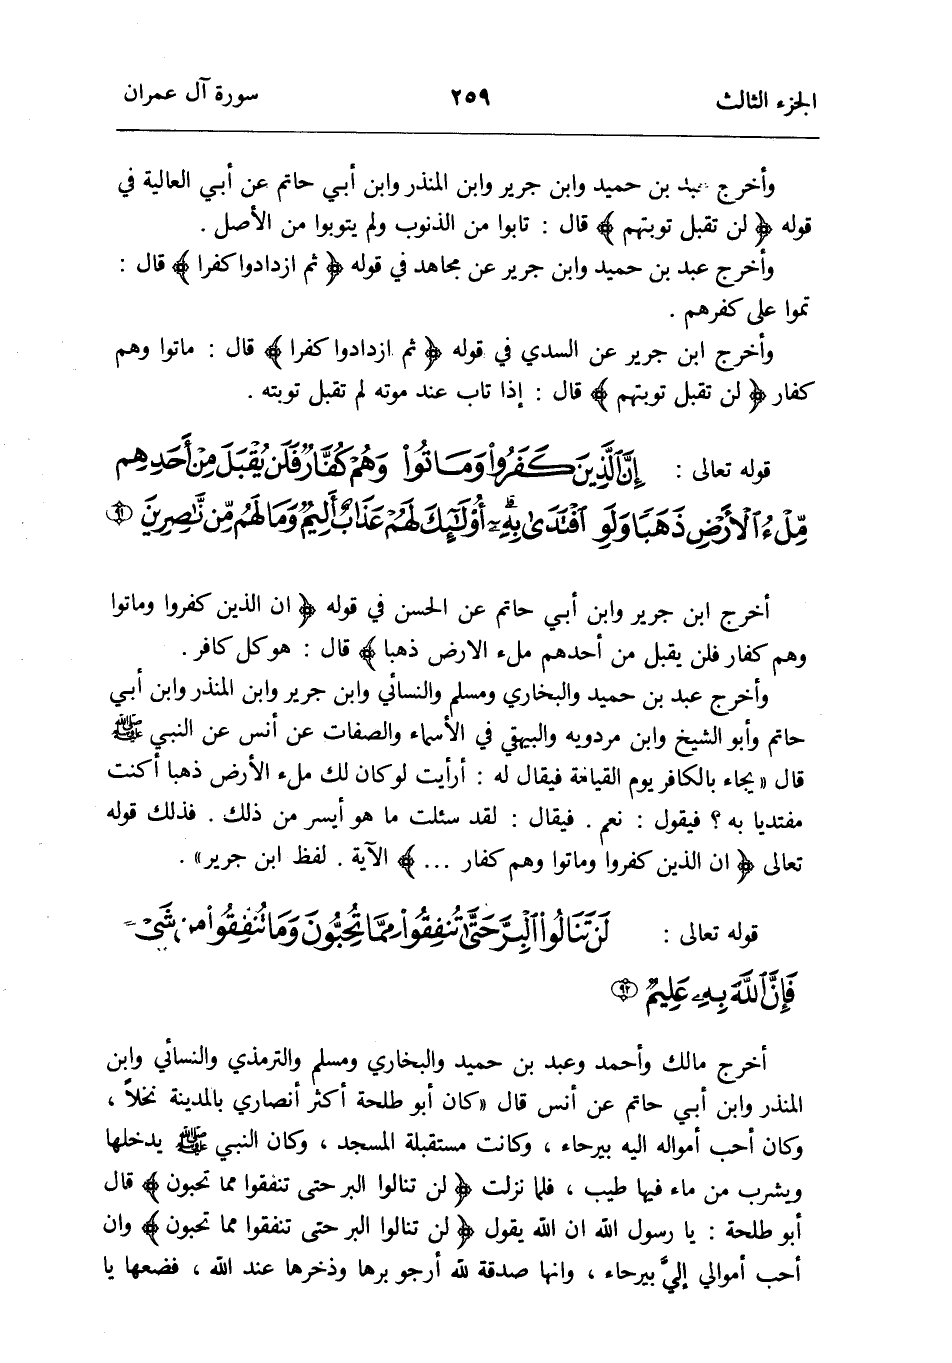 الجزء الثالث ٢٥٩ سورة آل عمران
وأخرج عبد بن حميد وابن جرير وابن المنذر وابن أبي حاتم عن أبي العالية في
قوله ﴿ لن تقبل توبتهم ﴾ قال : تابوا من الذنوب ولم يتوبوا من الأصل .
وأخرج عبد بن حميد وابن جرير عن مجاهد في قوله ﴿ ثم ازدادوا كفرا ﴾ قال :
تموا على كفرهم .
وأخرج ابن جرير عن السدي في قوله ﴿ ثم ازدادوا كفرا ﴾ قال : ماتوا وهم
كفار ﴿ لن تقبل توبتهم ﴾ قال : إذا تاب عند موته لم تقبل توبته .
قوله تعالى : إِنَّ ٱلَّذِينَ كَفَرُوا۟ وَمَاتُوا۟ وَهُمْ كُفَّارٌ فَلَن يُقْبَلَ مِنْ أَحَدِهِم
مِّلْءُ ٱلْأَرْضِ ذَهَبًا وَلَوِ ٱفْتَدَىٰ بِهِۦٓ ۗ أُو۟لَٰٓئِكَ لَهُمْ عَذَابٌ أَلِيمٌ وَمَا لَهُم مِّن نَّٰصِرِينَ ﴿٩١﴾
أخرج ابن جرير وابن أبي حاتم عن الحسن في قوله ﴿ ان الذين كفروا وماتوا
وهم كفار فلن يقبل من أحدهم ملء الارض ذهبا ﴾ قال : هو كل كافر .
وأخرج عبد بن حميد والبخاري ومسلم والنسائي وابن جرير وابن المنذر وابن أبي
حاتم وأبو الشيخ وابن مردويه والبيهقي في الأسماء والصفات عن أنس عن النبي ﷺ
قال « يجاء بالكافر يوم القيامة فيقال له : أرأيت لو كان لك ملء الأرض ذهبا أكنت
مفتديا به ؟ فيقول : نعم . فيقال : لقد سئلت ما هو أيسر من ذلك . فذلك قوله
تعالى ﴿ ان الذين كفروا وماتوا وهم كفار ... ﴾ الآية . لفظ ابن جرير» .
قوله تعالى : لَن تَنَالُوا۟ ٱلْبِرَّ حَتَّىٰ تُنفِقُوا۟ مِمَّا تُحِبُّونَ وَمَا تُنفِقُوا۟ مِن شَىْءٍ
فَإِنَّ ٱللَّهَ بِهِۦ عَلِيمٌ ﴿٩٢﴾
أخرج مالك وأحمد وعبد بن حميد والبخاري ومسلم والترمذي والنسائي وابن
المنذر وابن أبي حاتم عن أنس قال « كان أبو طلحة أكثر أنصاري بالمدينة نخلاً ،
وكان أحب أمواله اليه بيرحاء ، وكانت مستقبلة المسجد ، وكان النبي ﷺ يدخلها
ويشرب من ماء فيها طيب ، فلما نزلت ﴿ لن تنالوا البر حتى تنفقوا مما تحبون ﴾ قال
أبو طلحة : يا رسول الله ان الله يقول ﴿ لن تنالوا البر حتى تنفقوا مما تحبون ﴾ وان
أحب أموالي إليَّ بيرحاء ، وانها صدقة لله أرجو برها وذخرها عند الله ، فضعها يا